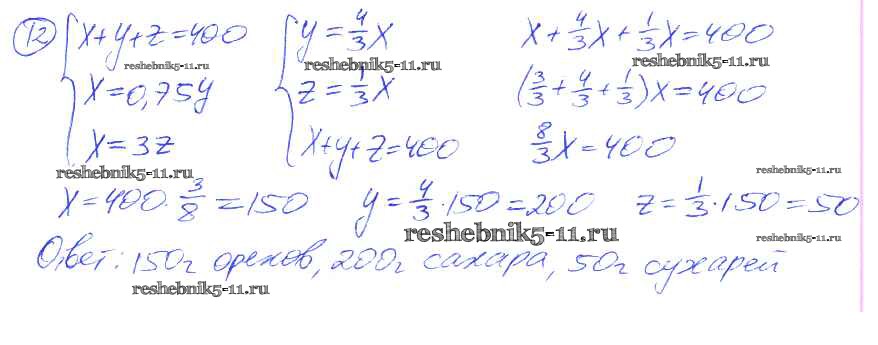 12 { x+y+z=400 { y=4/3x x+4/3x+1/3x=400
reshebnik5-11.ru reshebnik5-11.ru reshebnik5-11.ru
x=0,75y z=1/3x (3/3+4/3+1/3)x=400
x=3z x+y+z=400 8/3x=400
reshebnik5-11.ru reshebnik5-11.ru
x=400·3/8=150 y=4/3·150=200 z=1/3·150=50
reshebnik5-11.ru reshebnik5-11.ru
Ответ: 150г орехов, 200г сахара, 50г сухарей
reshebnik5-11.ru